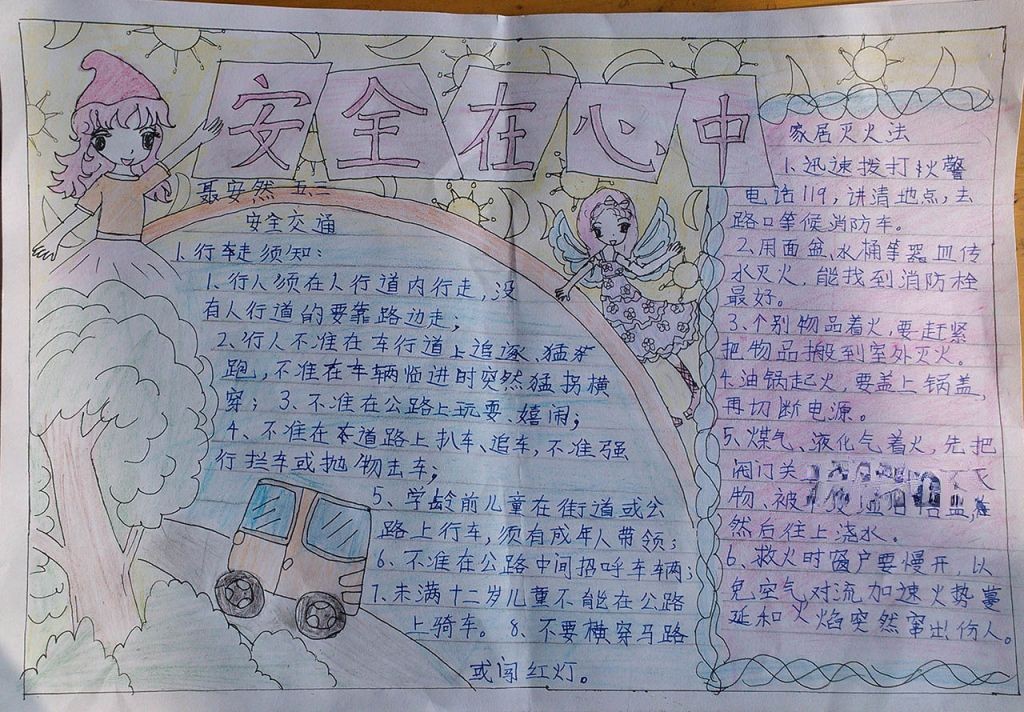 安全在心中
聂安然 五二
安全交通
1.行走须知:
1、行人须在人行道内行走,没
有人行道的要靠路边走;
2、行人不准在车行道上追逐、猛
跑,不准在车辆临进时突然猛拐横
穿; 3、不准在公路上玩耍、嬉闹;
4、不准在道路上扒车、追车,不准强
行拦车或抛物击车;
5、学龄前儿童在街道或公
路上行车,须有成年人带领;
6、不准在公路中间招呼车车辆;
7、未满十二岁儿童不能在公路
上骑车。 8、不要横穿马路
或闯红灯。
家居灭火法
1.迅速拨打火警
电话119,讲清地点,去
路口等候消防车。
2.用面盆、水桶等器皿传
水灭火,能找到消防栓
最好。
3、个别物品着火,要赶紧
把物品搬到室外灭火。
4.油锅起火,要盖上锅盖,
再切断电源。
5、煤气、液化气着火,先把
阀门关
物、被
然后往上浇水。
6、救火时窗户要慢开,以
免空气对流加速火势蔓
延和火焰突然窜出伤人。